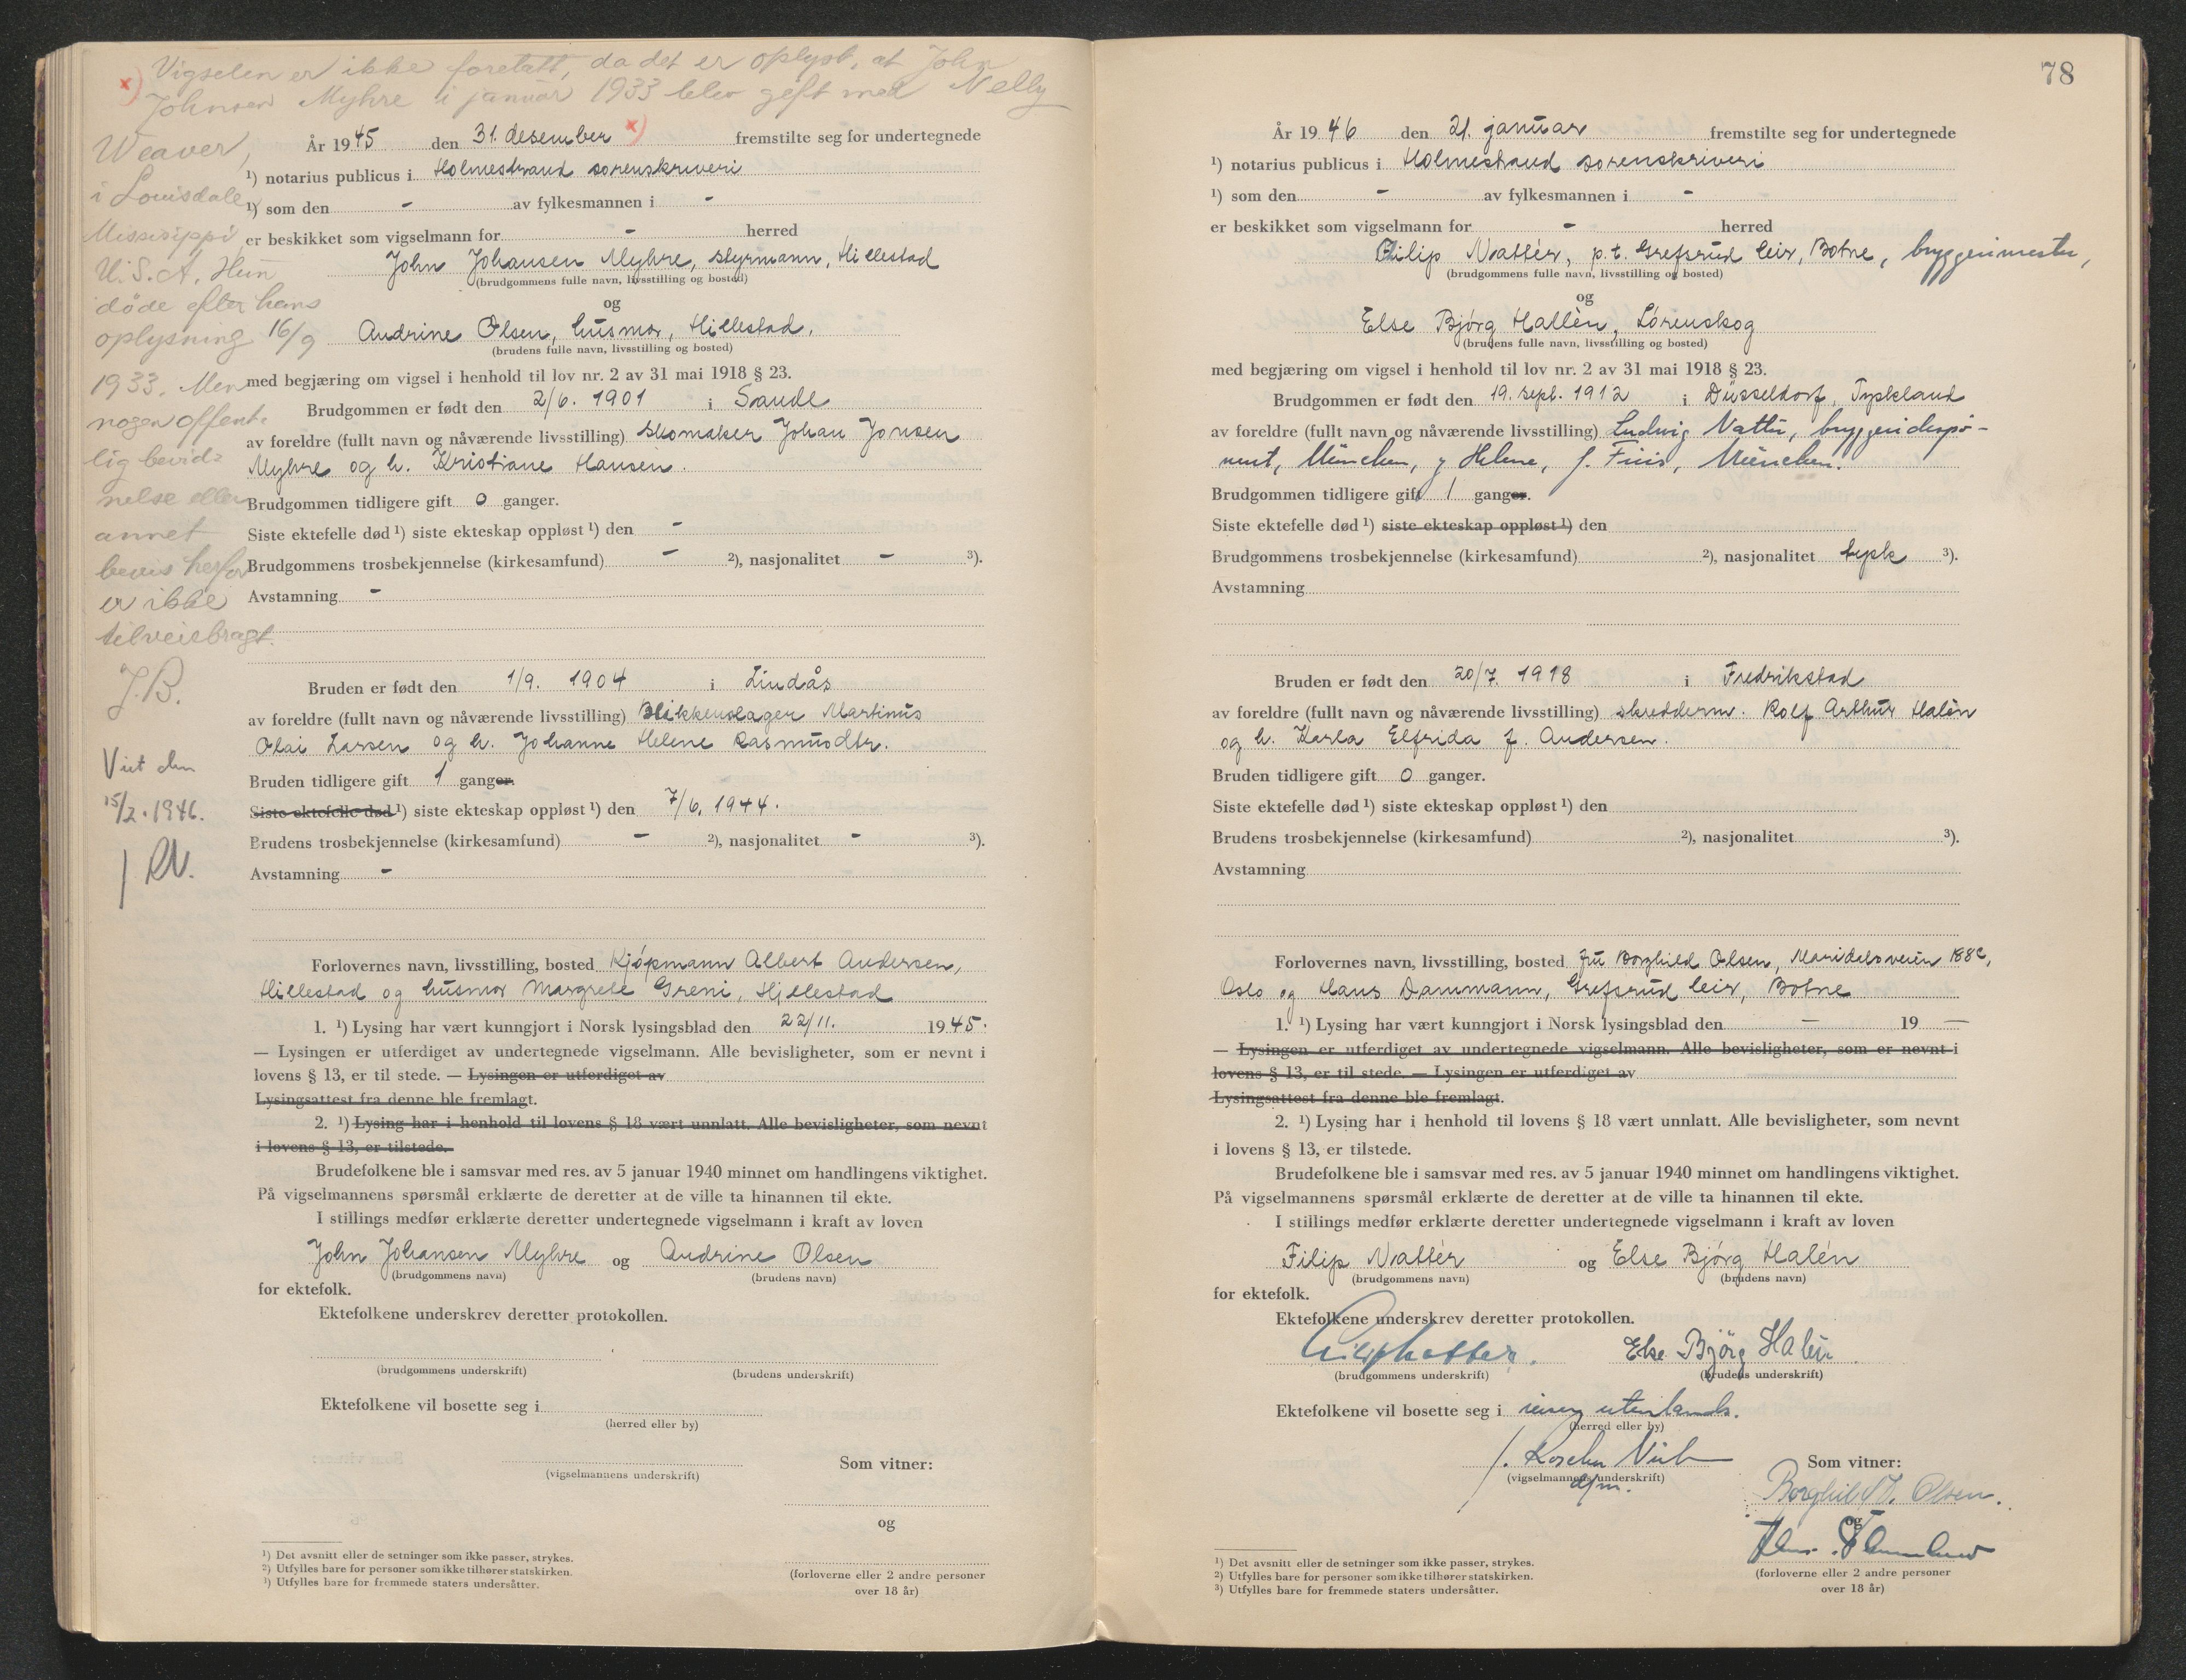 x) Vigselen er ikke foretatt, da det er oplyst, at John
Johnsen Myhre i januar 1933 blev gift med Nelly
Weaver,
i Louisdale
Missisippi
U.S.A. Hun
døde efter hans
oplysning 16/9
1933. Men
nogen offent-
lig bevid-
nelse eller
annet
bevis herfor
er ikke
tilveiebragt.
J.B.
Vist den
15/2. 1946.
RN.
År 1945 den 31. desember x) fremstilte seg for undertegnede
¹) notarius publicus i Holmestrand sorenskriveri
¹) som den - av fylkesmannen i -
er beskikket som vigselmann for - herred
John Johansen Myhre, styrmann, Hillestad
(brudgommens fulle navn, livsstilling og bosted)
og
Andrine Olsen, husmor, Hillestad.
(brudens fulle navn, livsstilling og bosted)
med begjæring om vigsel i henhold til lov nr. 2 av 31 mai 1918 § 23.
Brudgommen er født den 2/6. 1901 i Sande
av foreldre (fullt navn og nåværende livsstilling) skomaker Johan Jonsen
Myhre og h. Kristiane Hansen.
Brudgommen tidligere gift 0 ganger.
Siste ektefelle død ¹) siste ekteskap oppløst ¹) den -
Brudgommens trosbekjennelse (kirkesamfund) - ²), nasjonalitet - ³).
Avstamning -
Bruden er født den 1/9. 1904 i Lindås
av foreldre (fullt navn og nåværende livsstilling) Blikkenslager Martinus
Olai Larsen og h. Johanne Helene Rasmusdtr.
Bruden tidligere gift 1 ganger.
Siste ektefelle død ¹) siste ekteskap oppløst ¹) den 7/6. 1944.
Brudens trosbekjennelse (kirkesamfund) - ²), nasjonalitet - ³).
Avstamning -
Forlovernes navn, livsstilling, bosted Kjøpmann Albert Andersen,
Hillestad og husmor Margrete Greni, Hillestad
1. ¹) Lysing har vært kunngjort i Norsk lysingsblad den 22/11. 1945.
— Lysingen er utferdiget av undertegnede vigselmann. Alle bevisligheter, som er nevnt i
lovens § 13, er til stede. — Lysingen er utferdiget av
Lysingsattest fra denne ble fremlagt.
2. ¹) Lysing har i henhold til lovens § 18 vært unnlatt. Alle bevisligheter, som nevnt
i lovens § 13, er tilstede.
Brudefolkene ble i samsvar med res. av 5 januar 1940 minnet om handlingens viktighet.
På vigselmannens spørsmål erklærte de deretter at de ville ta hinannen til ekte.
I stillings medfør erklærte deretter undertegnede vigselmann i kraft av loven
John Johansen Myhre og Andrine Olsen
(brudgommens navn) (brudens navn)
for ektefolk.
Ektefolkene underskrev deretter protokollen.
(brudgommens underskrift) (brudens underskrift)
Ektefolkene vil bosette seg i
(herred eller by)
(vigselmannens underskrift)
Som vitner:
og
(forloverne eller 2 andre personer
over 18 år)
¹) Det avsnitt eller de setninger som ikke passer, strykes.
²) Utfylles bare for personer som ikke tilhører statskirken.
³) Utfylles bare for fremmede staters undersåtter.
78
År 1946 den 21. januar fremstilte seg for undertegnede
¹) notarius publicus i Holmestrand sorenskriveri
¹) som den - av fylkesmannen i -
er beskikket som vigselmann for - herred
Filip Nattér, p.t. Grefsrud leir, Botne, bryggerimester,
(brudgommens fulle navn, livsstilling og bosted)
og
Else Bjørg Hallèn, Lørenskog
(brudens fulle navn, livsstilling og bosted)
med begjæring om vigsel i henhold til lov nr. 2 av 31 mai 1918 § 23.
Brudgommen er født den 19. sept. 1912 i Düsseldorf, Tyskland
av foreldre (fullt navn og nåværende livsstilling) Ludwig Natter, bryggeridispo-
nent, München, og Helene, f. München.
Brudgommen tidligere gift 1 ganger.
Siste ektefelle død ¹) siste ekteskap oppløst ¹) den
Brudgommens trosbekjennelse (kirkesamfund) ²), nasjonalitet tysk ³).
Avstamning
Bruden er født den 20/7. 1918 i Fredrikstad
av foreldre (fullt navn og nåværende livsstilling) skredderm. Rolf Arthur Halèn
og h. Karla Elfrida f. Andersen.
Bruden tidligere gift 0 ganger.
Siste ektefelle død ¹) siste ekteskap oppløst ¹) den
Brudens trosbekjennelse (kirkesamfund) ²), nasjonalitet ³).
Avstamning
Forlovernes navn, livsstilling, bosted fru Borghild Olsen, Maridalsveien 188c,
Oslo og Hans Dammann, Grefsrud leir, Botne
1. ¹) Lysing har vært kunngjort i Norsk lysingsblad den — 19 —
— Lysingen er utferdiget av undertegnede vigselmann. Alle bevisligheter, som er nevnt i
lovens § 13, er til stede. — Lysingen er utferdiget av
Lysingsattest fra denne ble fremlagt.
2. ¹) Lysing har i henhold til lovens § 18 vært unnlatt. Alle bevisligheter, som nevnt
i lovens § 13, er tilstede.
Brudefolkene ble i samsvar med res. av 5 januar 1940 minnet om handlingens viktighet.
På vigselmannens spørsmål erklærte de deretter at de ville ta hinannen til ekte.
I stillings medfør erklærte deretter undertegnede vigselmann i kraft av loven
Filip Nattér og Else Bjørg Halén
(brudgommens navn) (brudens navn)
for ektefolk.
Ektefolkene underskrev deretter protokollen.
Filip Natter. Else Bjørg Halén
(brudgommens underskrift) (brudens underskrift)
Ektefolkene vil bosette seg i reiser utenlands.
(herred eller by)
(vigselmannens underskrift)
d/m.
Som vitner:
Borghild Olsen.
og
(forloverne eller 2 andre personer
over 18 år)
¹) Det avsnitt eller de setninger som ikke passer, strykes.
²) Utfylles bare for personer som ikke tilhører statskirken.
³) Utfylles bare for fremmede staters undersåtter.